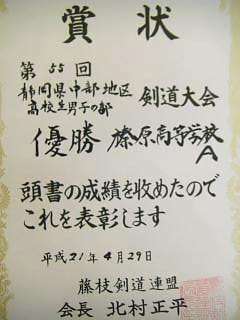 賞状
第55回
静岡県中部地区
高校生男子の部
剣道大会
優勝 榛原高等学校
A
頭書の成績を収めたので
これを表彰します
平成21年4月29日
藤枝剣道連盟
会長 北村正平